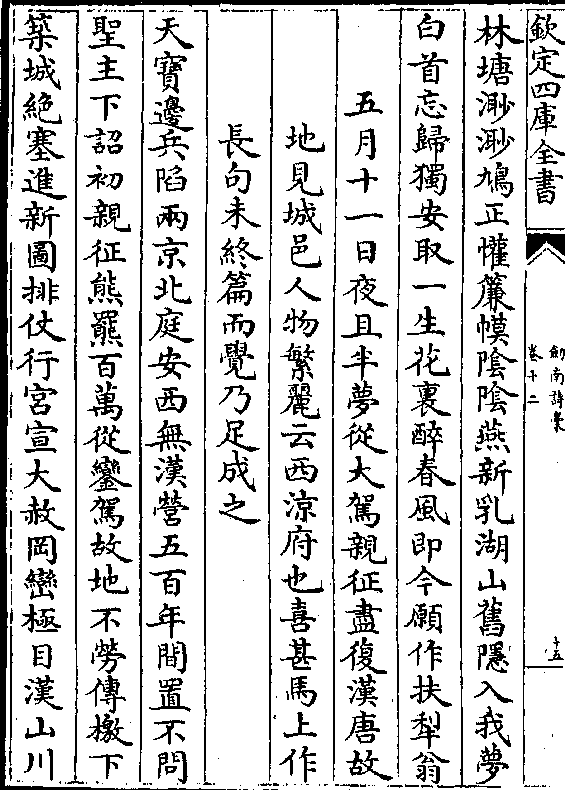 欽定四庫全書
劍南詩稾
卷十二
十五
林塘渺渺鳩正懽簾幙陰陰燕新乳湖山舊隱入我夢
白首忘歸獨安取一生花裏醉春風即今願作扶犁翁
五月十一日夜且半夢從大駕親征盡復漢唐故
地見城邑人物繁麗云西涼府也喜甚馬上作
長句未終篇而覺乃足成之
天寶邊兵陷兩京北庭安西無漢營五百年間置不問
聖主下詔初親征熊羆百萬從鑾駕故地不勞傳檄下
築城絶塞進新圖排仗行宮宣大赦岡巒極目漢山川